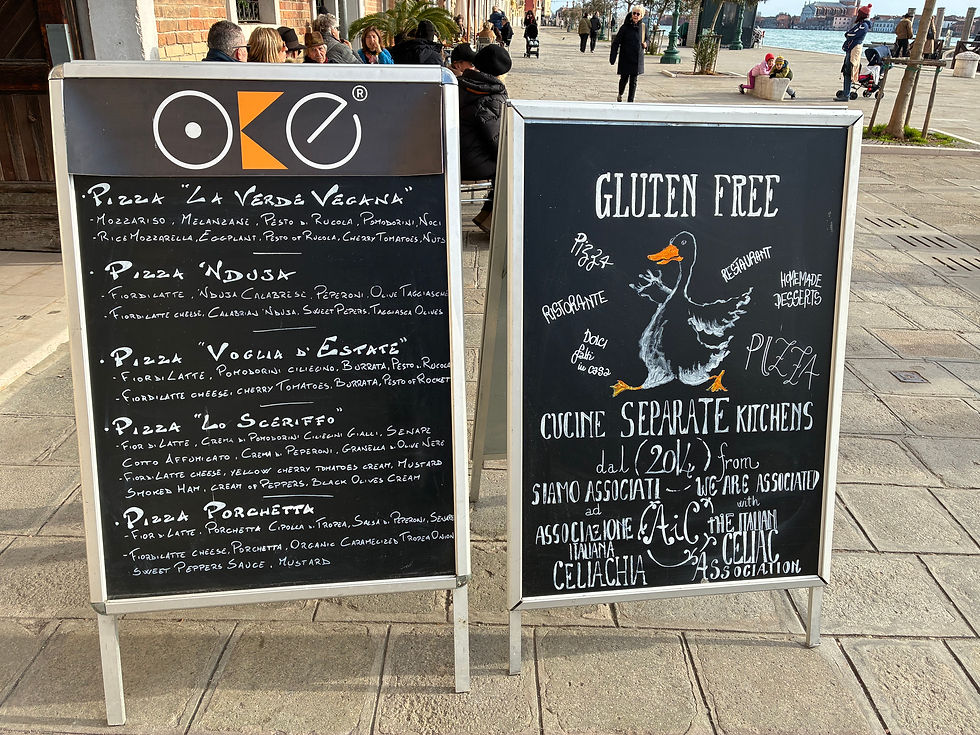 OKE®
Pizza "La Verde Vegana"
- Mozzariso, Melanzane, Pesto di Rucola, Pomodorini, Noci
- Rice Mozzarella, Eggplant, Pesto of Rucola, Cherry Tomatoes, Nuts
Pizza 'Nduja
- Fiordilatte, 'Nduja Calabrese, Peperoni, Olive Taggiasche
- Fiordilatte cheese, Calabrian 'Nduja, Sweet Pepers, Taggiasca Olives
Pizza "Voglia d'Estate"
- Fiordilatte, Pomodorini ciliegino, Burrata, Pesto di Rucola
- Fiordilatte cheese, cherry Tomatoes, Burrata, Pesto of Rocket
Pizza "Lo Sceriffo"
- Fiordilatte, Crema di Pomodorini Ciliegini Gialli, Senape
Cotto Affumicato, Crema di Peperoni, Granella di Olive Nere
- Fiordilatte cheese, yellow cherry tomatoes cream, Mustard
Smoked Ham, cream of Peppers, Black Olives Cream
Pizza Porchetta
- Fiordilatte, Porchetta Cipolla di Tropea, Salsa di Peperoni, Senape
- Fiordilatte cheese, Porchetta, Organic Caramelized Tropea Onion
Sweet Peppers Sauce, Mustard
GLUTEN FREE
Pizza
RESTAURANT
RISTORANTE
HOMEMADE
DESSERTS
Dolci
fatti
in casa
PIZZA
CUCINE SEPARATE KITCHENS
dal (2014) from
SIAMO ASSOCIATI WE ARE ASSOCIATED
ad with
ASSOCIAZIONE (AiC) THE ITALIAN
ITALIANA CELIAC
CELIACHIA ASSOCIATION